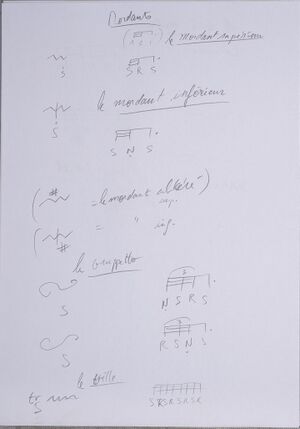 Mordants
le mordant supérieur
S S R S
le mordant inférieur
S S N S
(# = le mordant altéré)
sup.
(# = " inf.
le Gruppetto
S N S R S
S R S N S
le trille
tr
S S R S R S R S R